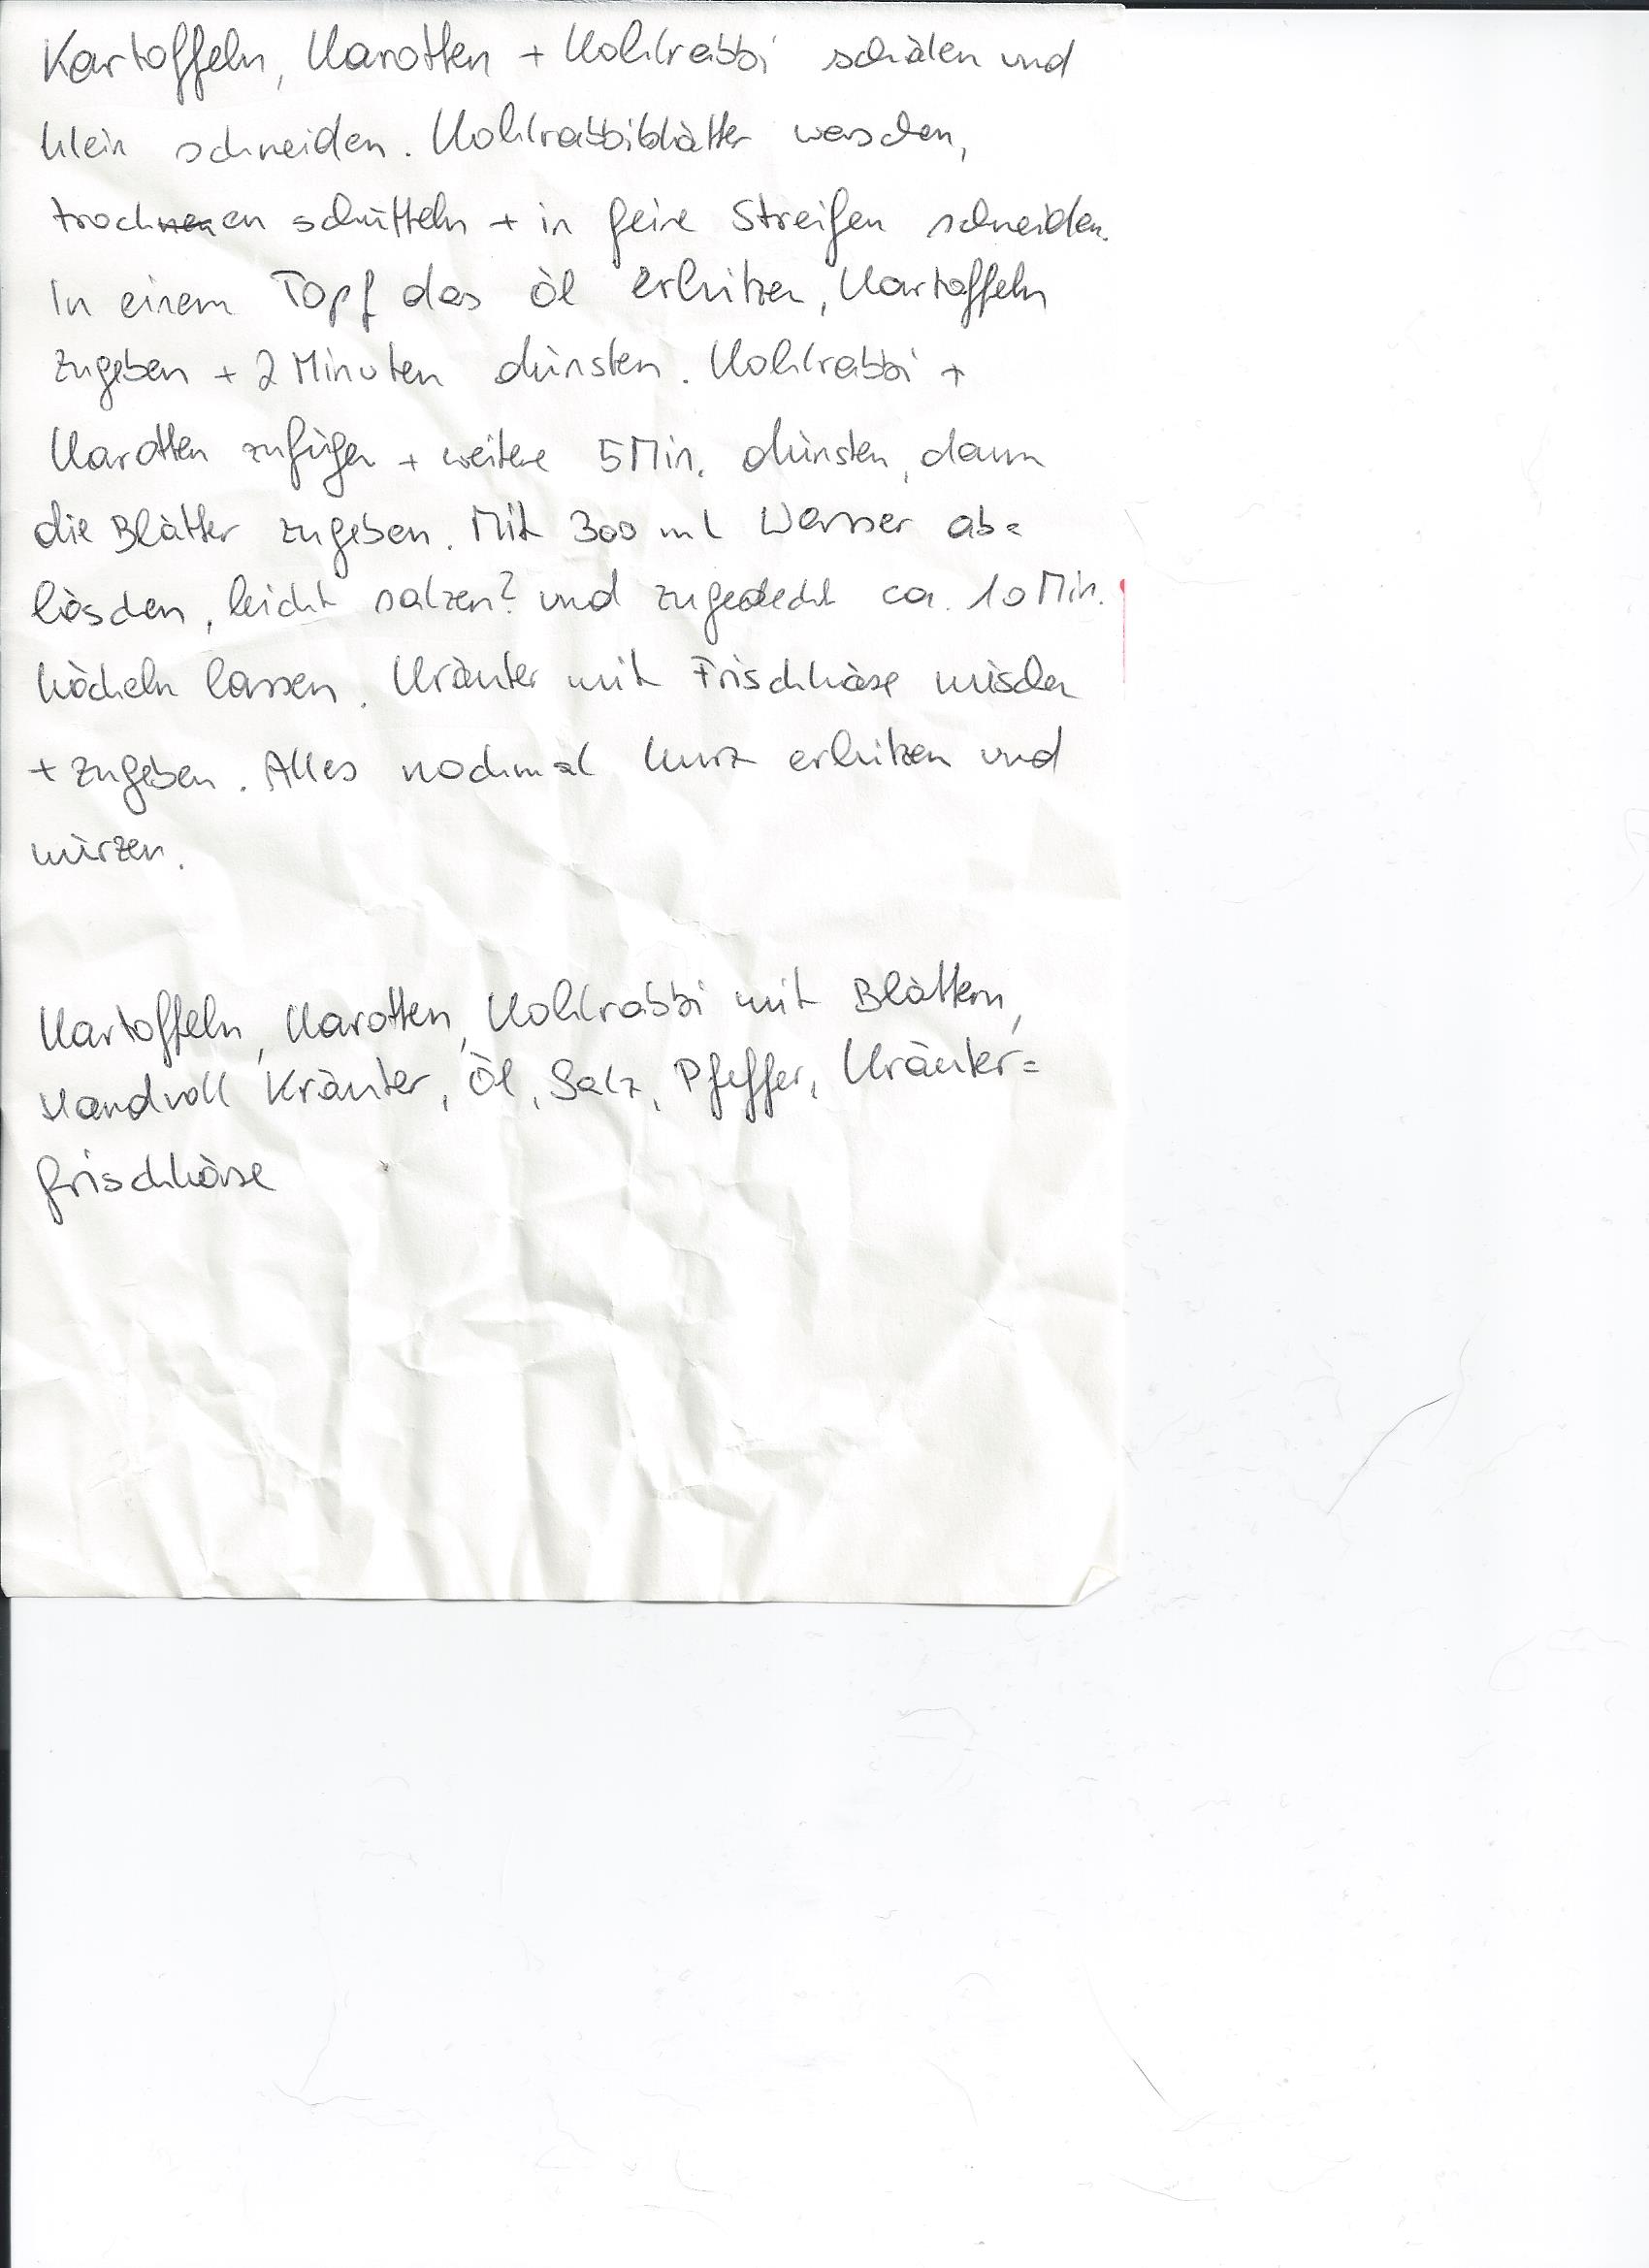 Kartoffeln, Karotten + Kohlrabbi schälen und
klein schneiden. Kohlrabbiblätter waschen,
trocknen schütteln + in feine Streifen schneiden.
In einem Topf das Öl erhitzen, Kartoffeln
zugeben + 2 Minuten dünsten. Kohlrabbi +
Karotten zufügen + weitere 5 Min. dünsten, dann
die Blätter zugeben. Mit 300 ml Wasser ab=
löschen, leicht salzen? und zugedeckt ca. 10 Min.
köcheln lassen. Kräuter mit Frischkäse mischen
+ zugeben. Alles nochmal kurz erhitzen und
würzen.
Kartoffeln, Karotten, Kohlrabbi mit Blättern,
Handvoll Kräuter, Öl, Salz, Pfeffer, Kräuter=
frischkäse